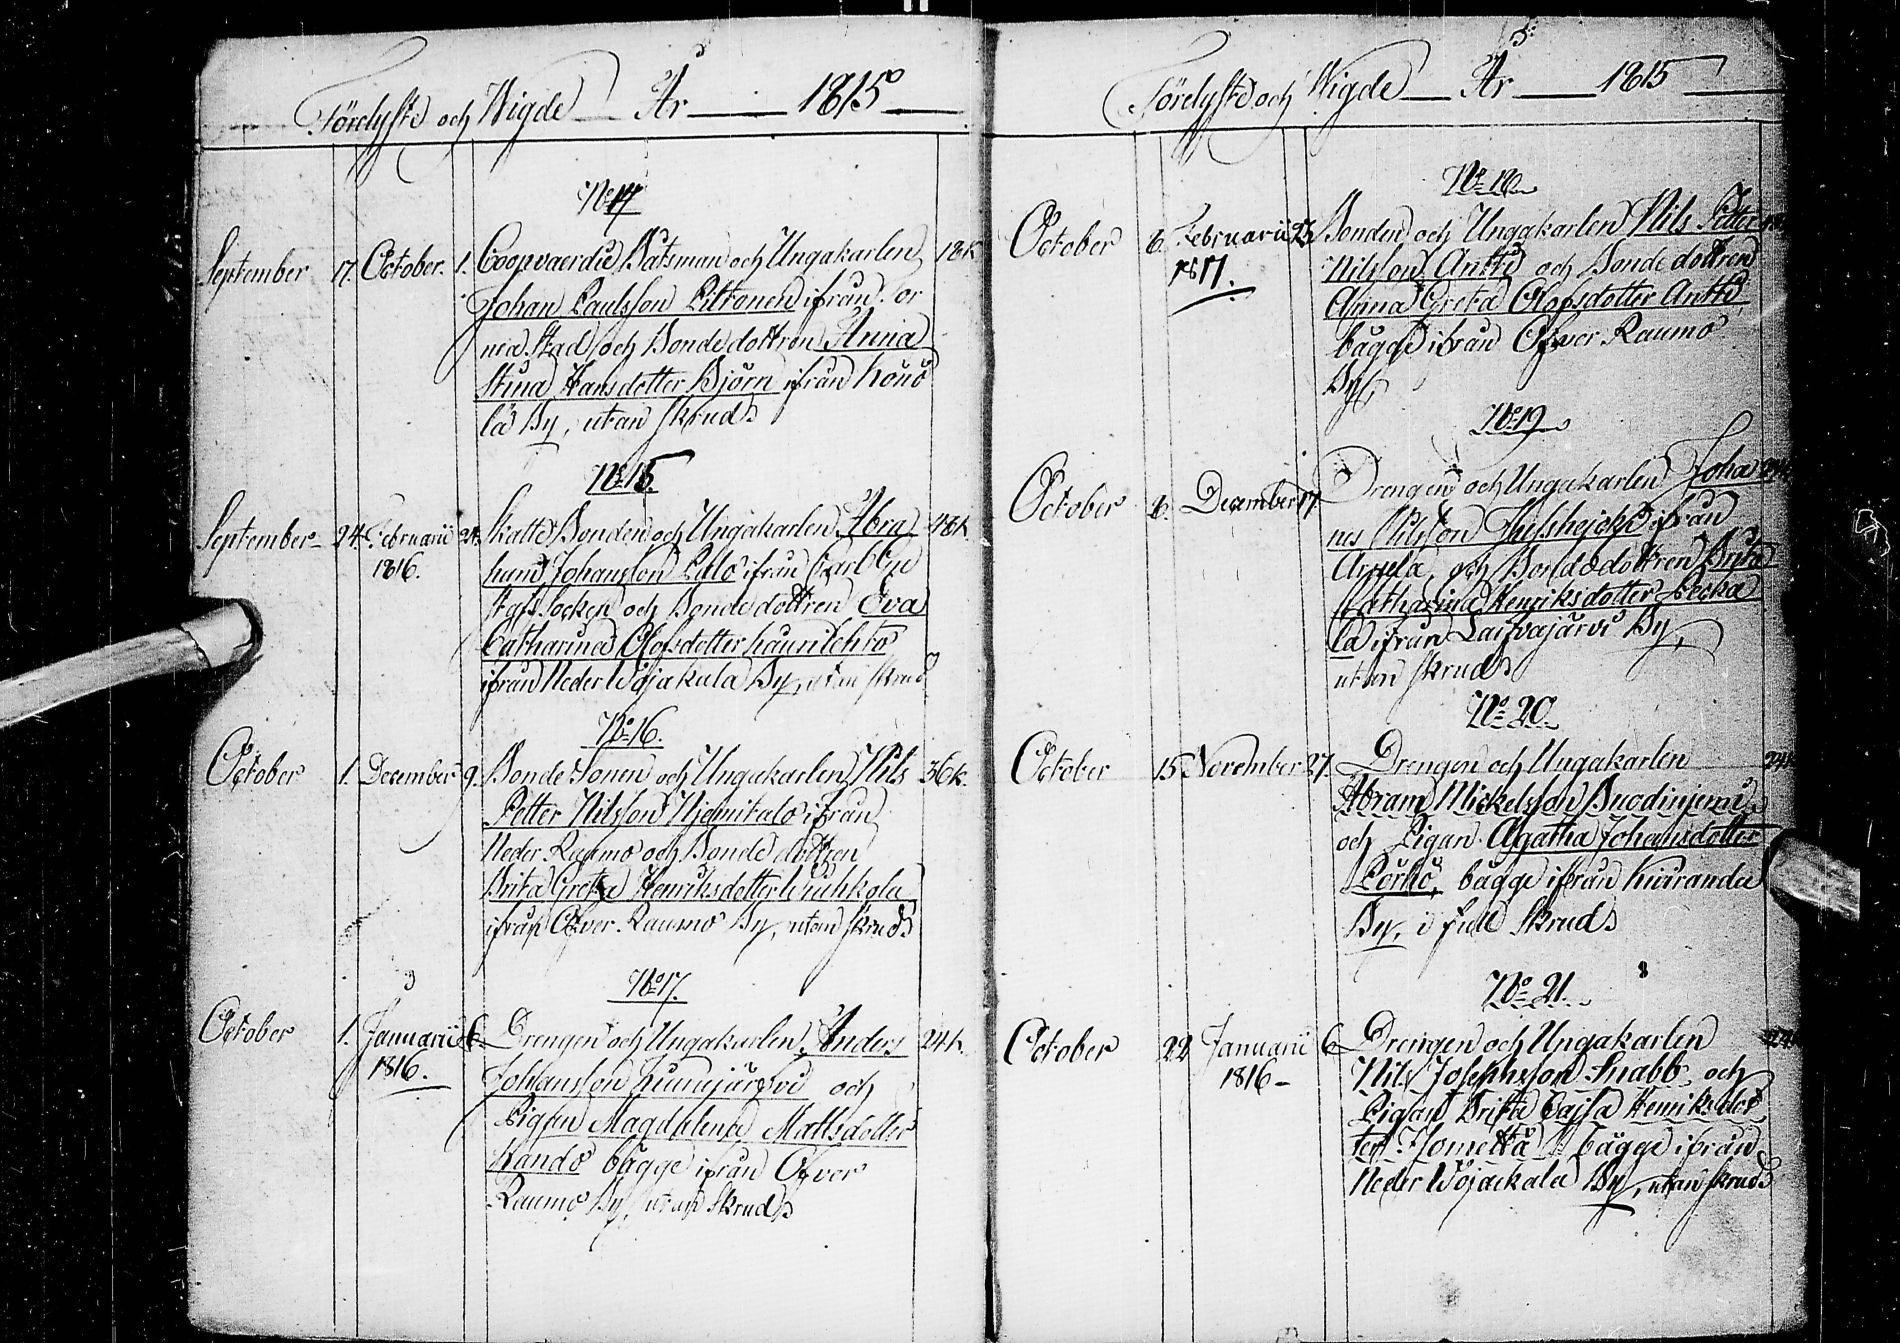 Förelyste och Wigde År 1815
No 14
September 17. October. 1. Coopvaerdie Båtsman och Ungakarlen 18k
Johan Paulsson Piltonen ifrån
nea Stad, och Bonde dottren Anna
Stina Hansdotter Björn ifrån
lä By, utan Skrud
No 15.
September 24. Februarii 24. Skatte Bonden och Ungakarlen Abra 48k
1816.
ham Johansson Pulo ifrån Carl Öje
Socken och Bonde dottren Eva
Catharina Olofsdotter
ifrån Neder Wojakala By, utan Skrud
No 16.
October 1. December 9. Bonde Sonen och Ungakarlen Nils 36k.
Petter Nilsson Njemitalo ifrån
Neder Raumo och Bonde dottren
Brita Greta Henriksdotter
ifrån Öfver Raumo By, utan Skrud
No 17.
October 1. Januarii 6. Drengen och Ungakarlen Anders 24k.
1816.
Johansson och
Pigan Magdalena Mattsdotter
Kando bägge ifrån Öfver
Raumo By, utan Skrud
Förelyste och Wigde År 1815
No 18
October 6. Februarii 25 Bonden och Ungakarlen Nils Petter
1817.
Nilsson Antti och Bonde dottren
Anna Greta Olofsdotter Antti
bägge ifrån Öfver Raumo
By,
No 19
October 6. December 17. Drengen och Ungakarlen Joha
nes Nilsson ifrån
och Bondedottren Brita
Catharina Henriksdotter Pecka
la ifrån Laifvajärvi By,
utan Skrud
No 20.
October 15 November 27. Drengen och Ungakarlen 24k
Abram Mickelsson
och Pigan Agatha Johansdotter
Pörhö, bägge ifrån Kiviranda
By, i full Skrud
No 21.
October 22 Januarii 6 Drengen och Ungakarlen 24k
1816
Nils Josephsson Snabb och
Pigan Britta Cajsa Henriksdot
ter bägge ifrån
Neder Wojakala By, utan Skrud